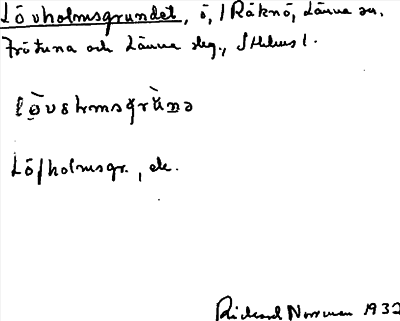 Lövholmsgrundet, ö, / Råknö, Länna sn,
Frötuna och Länna slg., Sthlms l.
Löfholmsgr., ek.
Rickard Norrman 1932